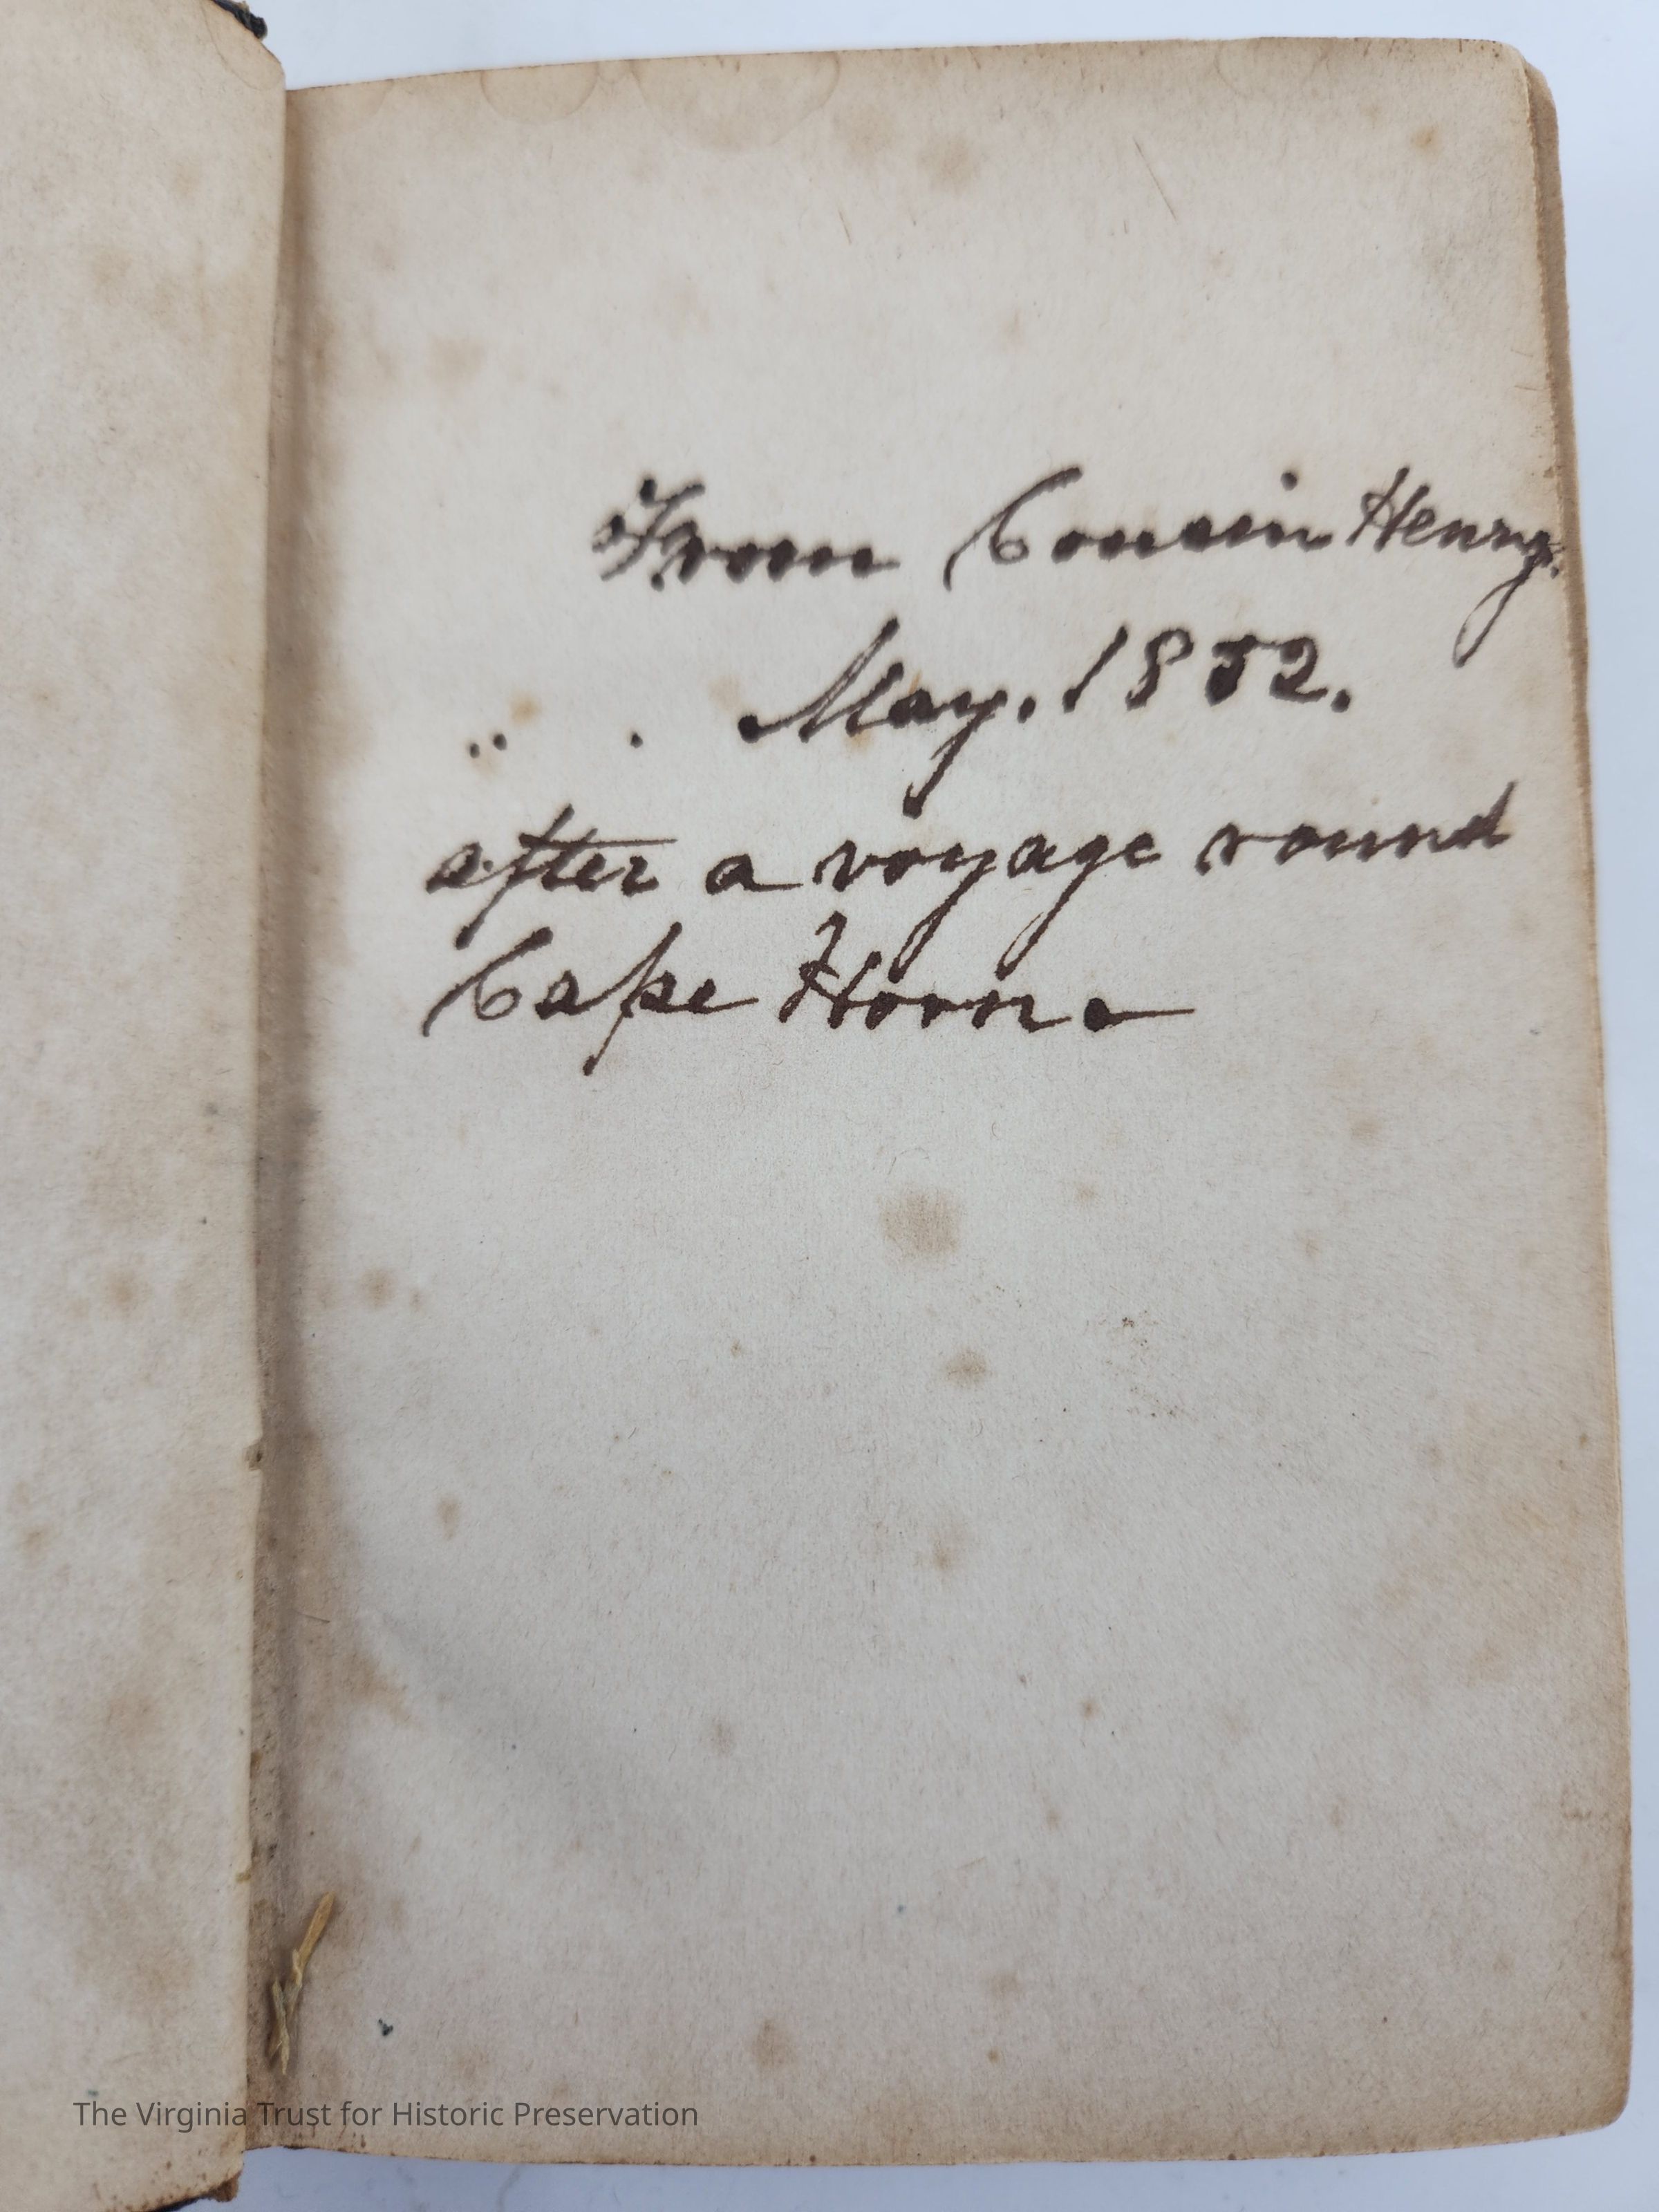 From Cousin Henry.
May. 1852.
after a voyage round
Cape Horn.
The Virginia Trust for Historic Preservation